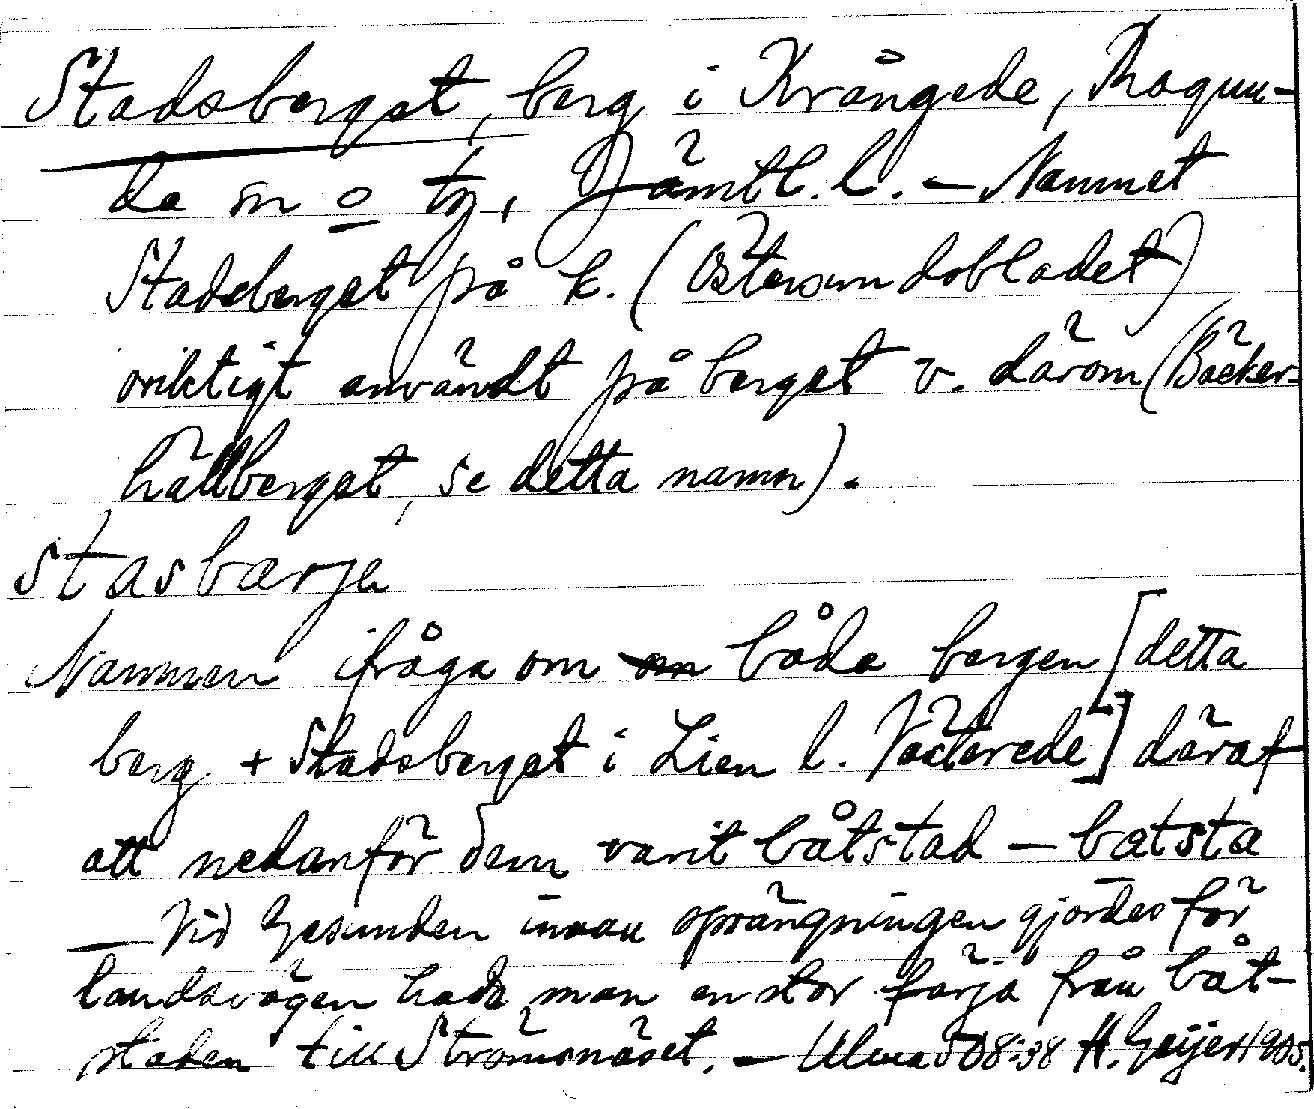 Stadsberget, berg i Krångede, Ragun-
da sn o tg, Jämtl. l. – Namnet
Stadsberget på k. (Östersundsbladet)
oriktigt användt på berget v. därom (Bäcker-
hällberget, se detta namn).
stasbærje
Namnen ifråga om båda bergen [detta
berg + Stadsberget i Lien l. Västerede] däraf
att nedanför dem varit båtstad – batsta
– Vid Gesunden innan sprängningen gjordes för
landsvägen hade man en stor färja från båt-
staden till Strömsnäset. – Ulma 508:38 H. Geijer 1905.